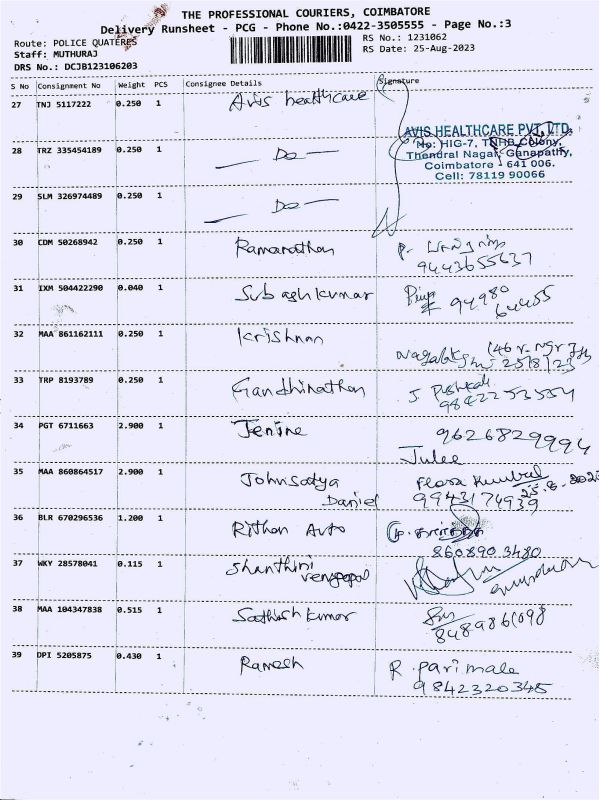 THE PROFESSIONAL COURIERS, COIMBATORE
Delivery Runsheet - PCG - Phone No.:0422-3505555 - Page No.:3
Route: POLICE QUATERES
RS No.: 1231062
Staff: MUTHURAJ
RS Date: 25-Aug-2023
DRS No.: DCJB123106203
S No Consignment No Weight PCS Consignee Details Signature
27 TNJ 5117222 0.250 1 Avis healthcare
AVIS HEALTHCARE PVT. LTD.
No: HIG-7, TNHB Colony,
Thendral Nagar, Ganapathy,
Coimbatore - 641 006.
Cell: 78119 90066
28 TRZ 335454189 0.250 1 — Do —
29 SLM 326974489 0.250 1 — Do —
30 CDM 50268942 0.250 1 Ramanathan
9443655637
31 IXM 504422290 0.040 1 Subash kumar
94980
64455
32 MAA 861162111 0.250 1 Krishnan
25/8/23
33 TRP 8193789 0.250 1 Gandhinathan
34 PGT 6711663 2.900 1 Jenine 9626829994
Julee
35 MAA 860864517 2.900 1 John Satya
Daniel 9943174939
36 BLR 670296536 1.200 1 Rithan Auto
860890 3480
37 WKY 28578041 0.115 1 Shanthini
venugopal
38 MAA 104347838 0.515 1 Sathish kumar
8489861098
39 DPI 5205875 0.430 1 Ramesh R. parimala
9842320345